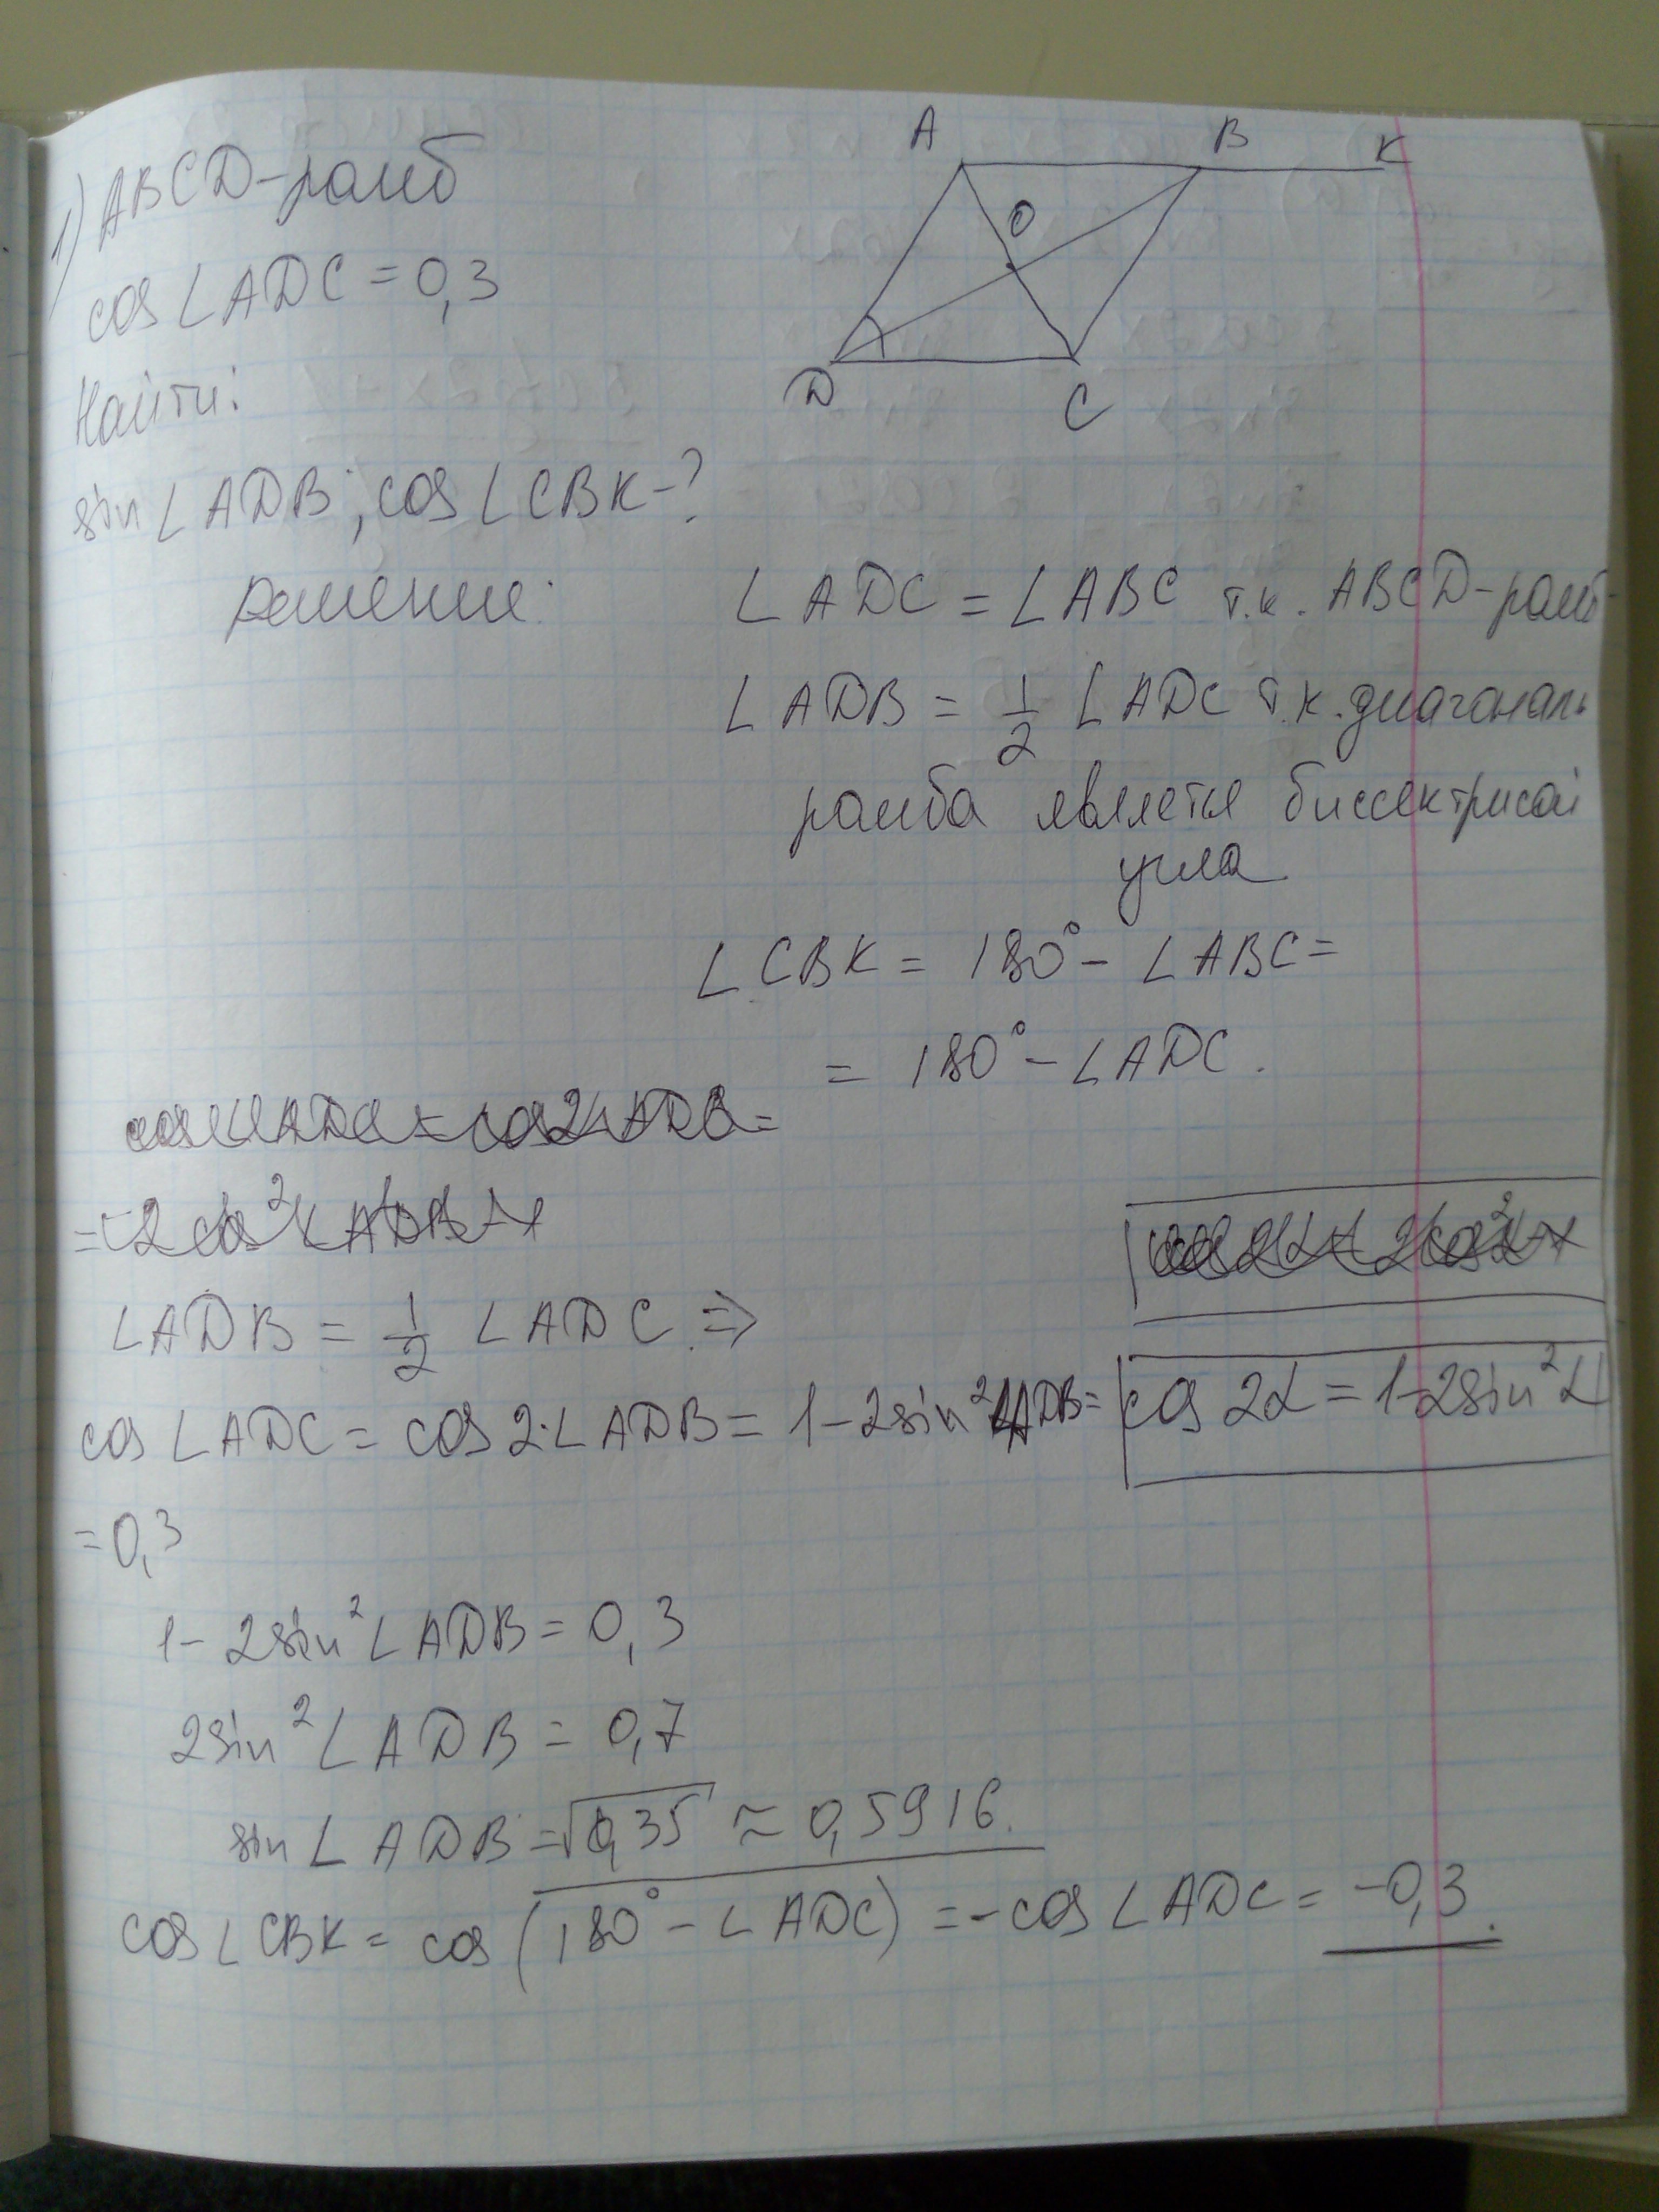 1) ABCD-ромб
cos∠ADC=0,3
Найти:
sin∠ADB; cos∠CBK-?
A B K
O
D C
решение:
∠ADC = ∠ABC т.к. ABCD-ромб
∠ADB = 1/2 ∠ADC т.к. диагональ
ромба является биссектрисой
угла
∠CBK = 180°- ∠ABC=
= 180°-∠ADC.
cos∠ADC=cos2∠ADB=
=2cos²∠ADB-1
∠ADB = 1/2 ∠ADC ⇒
cos∠ADC = cos2·∠ADB= 1-2sin²∠ADB=
=0,3
cos2α=2cos²α-1
cos 2α=1-2sin²α
1-2sin²∠ADB=0,3
2sin²∠ADB=0,7
sin∠ADB=√0,35 ≈0,5916.
cos∠CBK= cos(180°-∠ADC)=-cos∠ADC= -0,3.